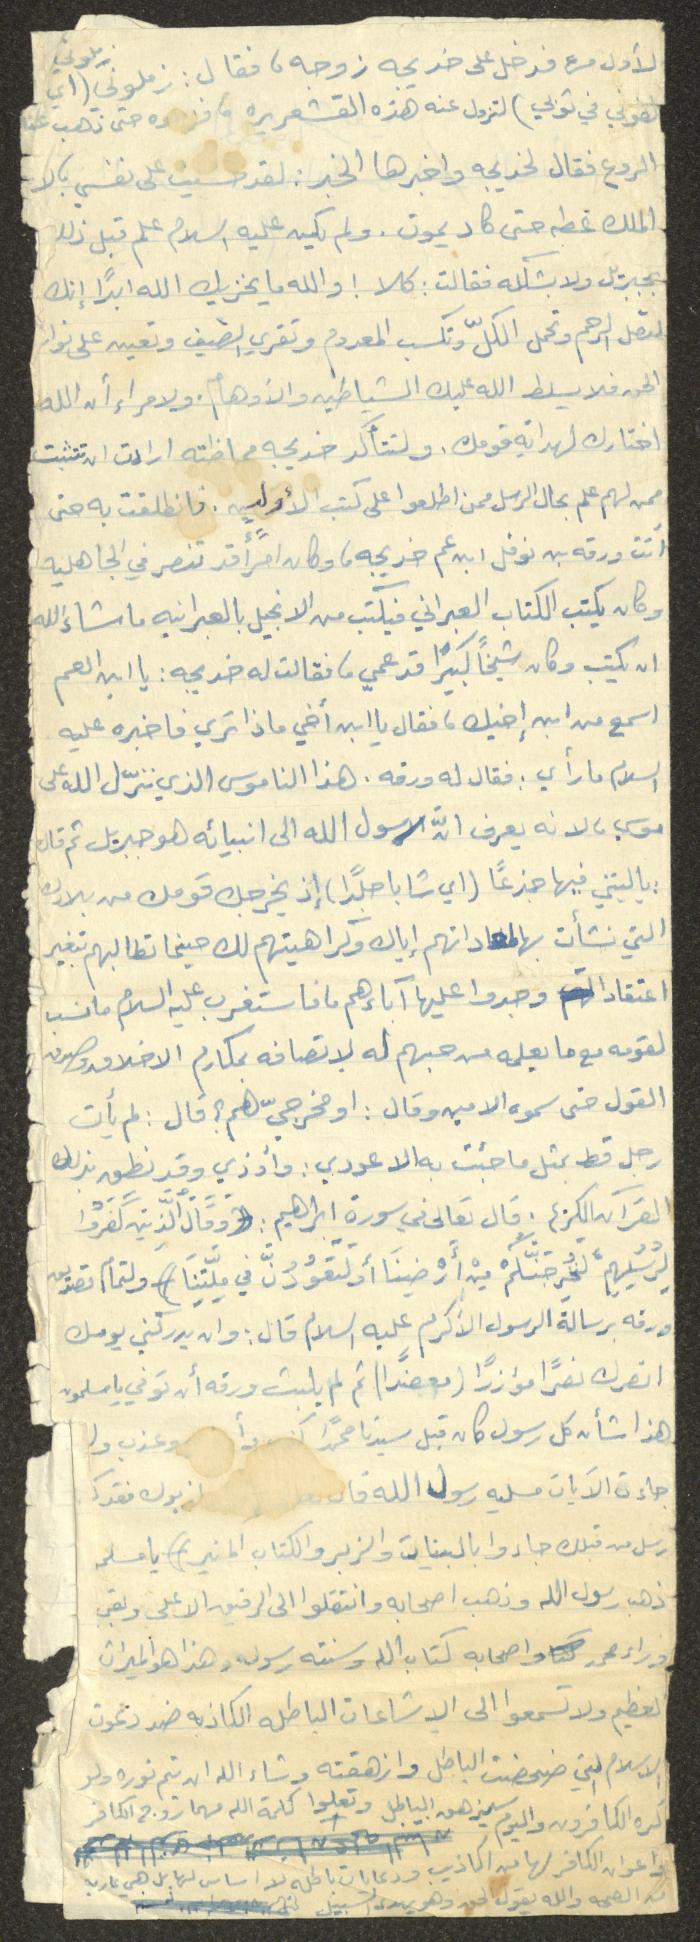 زملوني
لأول مره فدخل على خديجه زوجه، فقال: زملوني (أي
لفوني في ثوبي) لتزول عنه هذه القشعريره، حتى ذهب عنه
الروع فقال لخديجه واخبرها الخبر: لقد خشيت على نفسي
الملك غطه حتى كاد يموت. ولم يكن عليه السلام علم قبل ذلك
بجبريل ولا بشكله فقالت: كلا! والله ما يخزيك الله ابدًا إنك
لتصل الرحم وتحمل الكلّ وتكسب المعدوم وتقري الضيف وتعين على نوائب
الحق فلا يسلط الله عليك الشياطين والأوهام. ولا مراء أن الله
اختارك لهداية قومك. ولتتأكد خديجه مما ظنته ارادت ان تتثبت
ممن لهم علم بحال الرسل ممن اطلعوا على كتب الأولين. فانطلقت به حتى
أتت ورقه بن نوفل ابن عم خديجه، وكان امرًأ قد تنصر في الجاهليه
وكان يكتب الكتاب العبراني فيكتب من الانجيل بالعبرانيه ما شاء الله
ان يكتب وكان شيخًا كبيرًا قد عمي، فقالت له خديجه: يا ابن العم
اسمع من ابن إخيك، فقال يا ابن أخي ماذا تري فاخبره عليه
السلام ما رأي: فقال له ورقه. هذا الناموس الذي نزّل الله على
موسى، لانه يعرف أنّ رسول الله الى انبيائه هو جبريل ثم قال
: يا ليتني فيها جذعًا (اي شابا جلدًا) إذ يخرجك قومك من بلادك
التي نشأت بها لمعاداتهم إياك وكراهيتهم لك حينما تطالبهم بتغير
اعتقادات وجدوا عليها آباءهم، فاستغرب عليه السلام ما نسب
لقومه مع ما يعلمه من حبهم له لاتصافه بمكارم الاخلاق وصدق
القول حتى سموه الامين وقال: او مخرجيّ هم؟ قال: لم يأت
رجل قط بمثل ما جئت به الا عودي: وأوذي وقد نطق بذلك
القرآن الكريم. قال تعالى في سورة ابراهيم: (وَقَالَ الَّذِينَ كَفَرُوا
لِرُسُلِهِم لَنُخْرِجَنَّكُمْ مِنْ أَرْضِنَا أَوْ لَتَعُودُنَّ فِي مِلَّتِنَا) ولتمام تصديق
ورقه برسالة الرسول الأكرم عليه السلام قال: وان يدركني يومك
انصرك نصرًا مؤزرًا (معضدًا) ثم لم يلبث ورقه أن توفي يا مسلمون
هذا شأن كل رسول كان قبل سيدنا محمدًا وعذب
جاءت الآيات مسليه رسول الله قال كذبوك فقد كذب
رسل من قبلك جاءوا بالبينات والزبر والكتاب المنير) يا مسلم
ذهب رسول الله وذهب اصحابه وانتقلوا الى الرفيق الاعلى وبقي
وراء محمد واصحابه كتاب الله وسنة رسوله، هذا هو الميراث
العظيم ولا تسمعوا الى الإشاعات الباطله الكاذبه ضد دعوت
الاسلام التي ضحضت الباطل وازهقته وشاء الله ان يتم نوره ولو
كره الكافرون واليوم سيزهق الباطل وتعلوا كلمة الله مهما روج الكافر
واعوان الكافر لها من اكاذيب ودعايات باطله لا اساس لها بل هي عاريه
من الصحه والله يقول الحق وهو يهدي السبيل